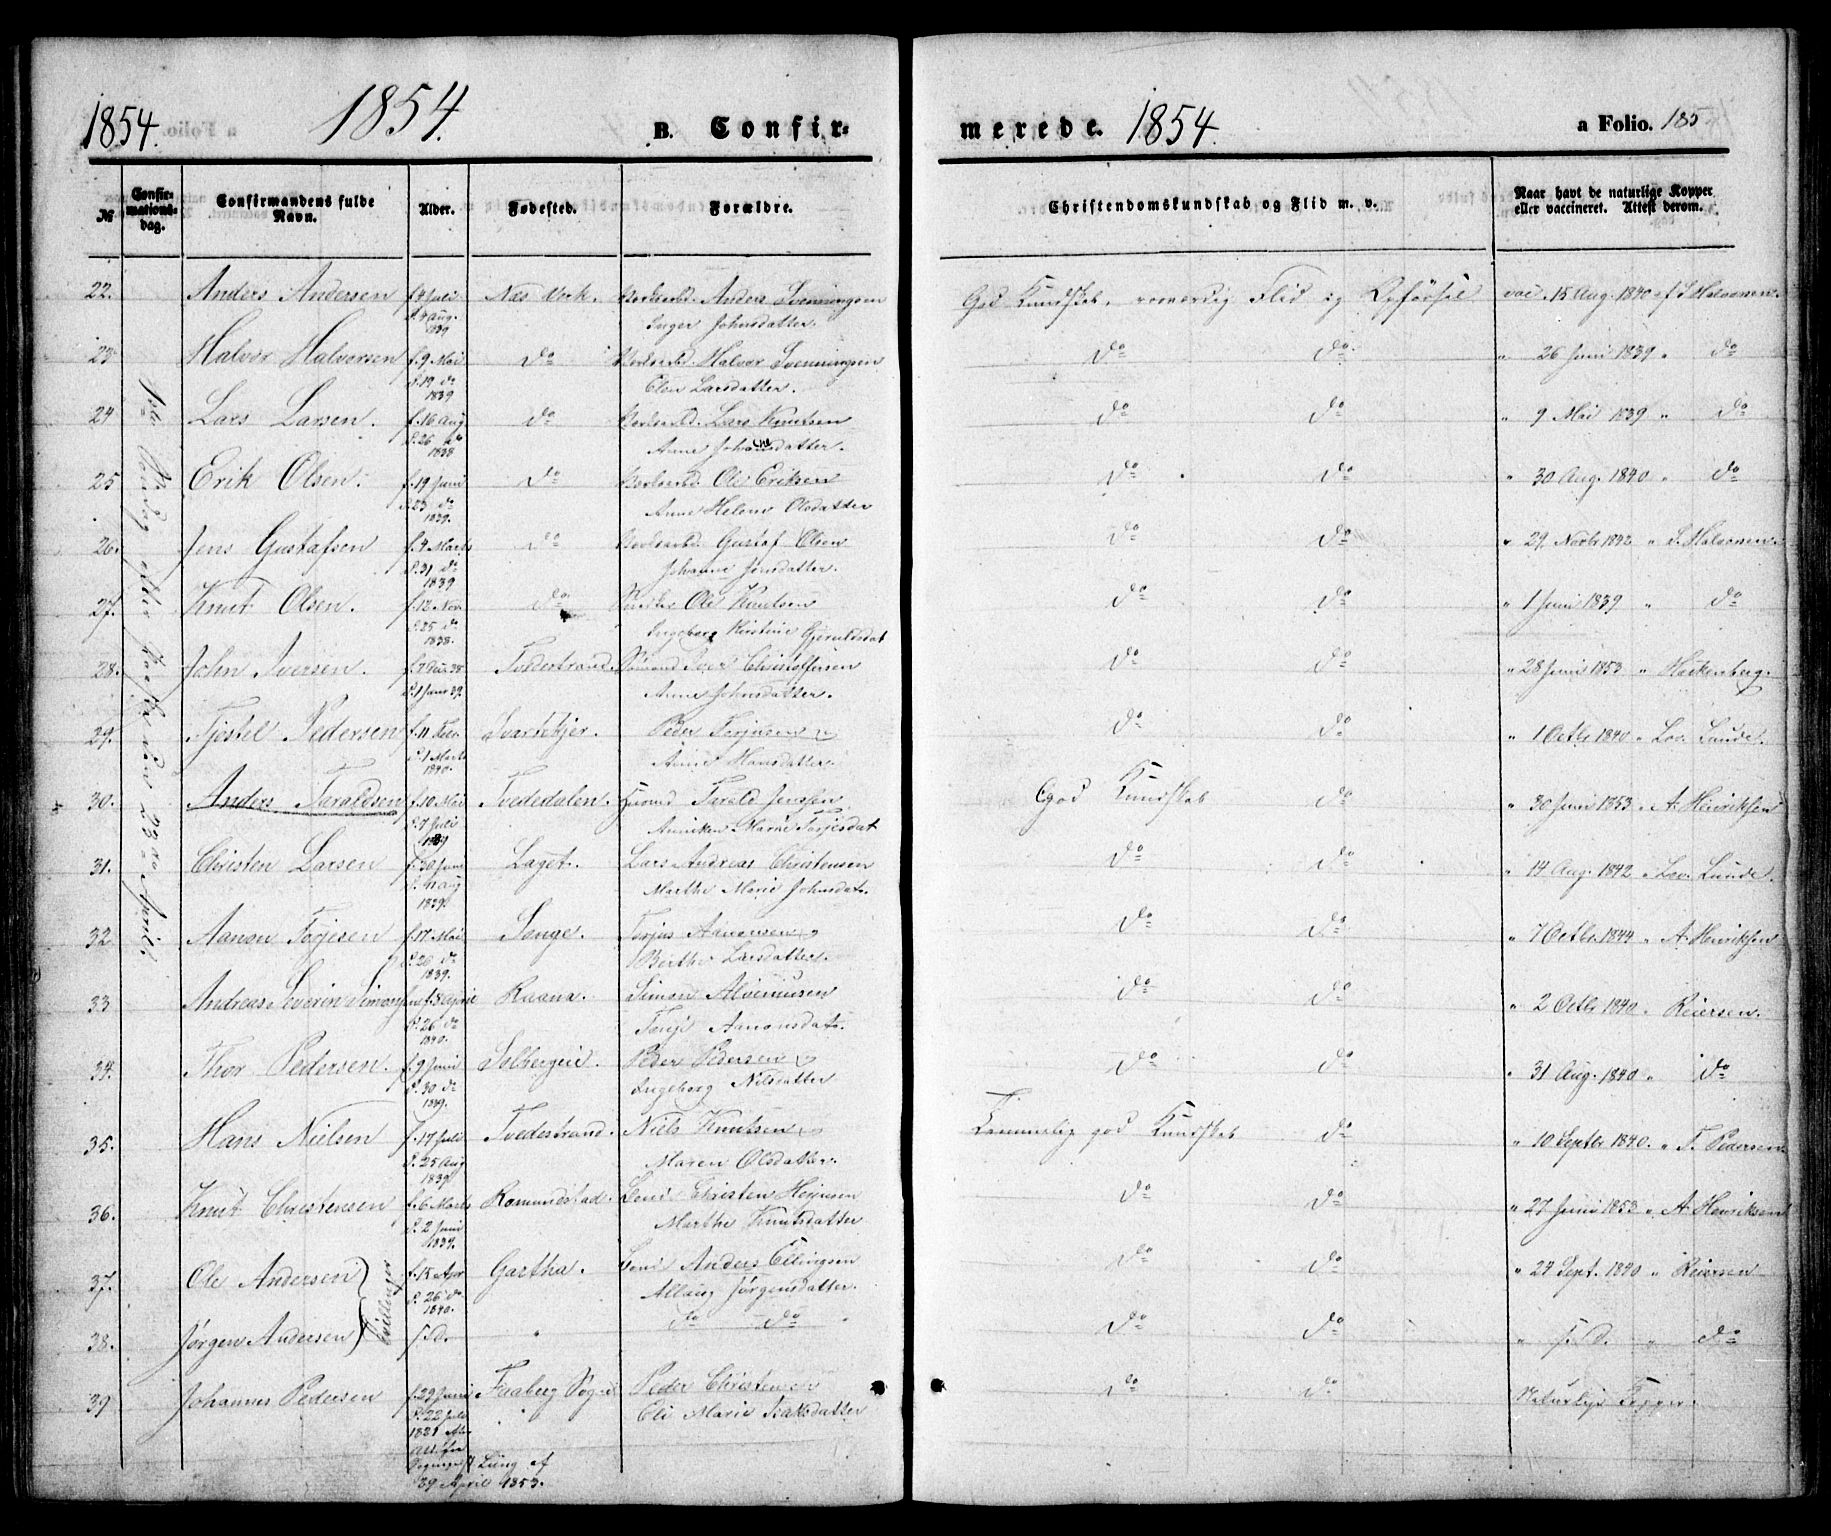 1854. 1854. B. Confir- merede. 1854. a Folio. 185
№ Confir-mations-dag. Confirmandens fulde Navn. Alder. Fødested. Forældre. Christendomskundskab og Flid m. v. Naar havt de naturlige Kopper eller vaccineret. Attest derom.
1ste Søndag efter Paaske den 23de April
22. Anders Andersen f. 4 Juli Næs Verk. Anders Svenningsen God Kundskab, Flid og Opførsel vac. 15 Aug. 1840 af S. Halvorsen.
d. 4 Aug. 1839 Inger Johnsdatter.
23 Halvor Halvorsen f. 9 Mai Do Halvor Svenningsen Do Do " 26 Juni 1839 " Do
d. 19 do 1839 Elen Larsdatter.
24 Lars Larsen. f. 16 Aug Do Lars Knutsen Do Do " 9 Mai 1839 " Do
d. 26 do 1838 Anne Johannesdatter.
25 Erik Olsen. f. 19 Juni Do Ole Eriksen Do Do " 30 Aug. 1840 " Do
d. 23 do 1839. Anne Helene Olsdatter
26. Jens Gustafsen f. 4 Marts Do Gustaf Olsen Do Do " 29 Novbr 1842 " S. Halvorsen.
d. 31 do 1839 Johanne Jensdatter.
27. Knut Olsen. f. 12 Nov. Do Ole Knutsen Do Do " 1 Juni 1839 " Do
d. 25 do 1838. Ingeborg Kirstine Gjeruldsdat
28. John Iversen. f. 7 Dec. 38 Tvedestrand. Sømand Iver Christoffersen Do Do " 28 Juni 1853 " Hockenberg.
d. 1 Janr 39. Anne Johnsdatter.
29. Tjøstel Pedersen f. 11 Svartekjer. Peder Terjesen Do Do " 1 Octbr 1840 " Lov. Lunde.
d. 1 Marts 1840. Anne Hansdatter.
30. Anders Taraldsen f. 10 Mai Tvededalen. Tarald Jensen God Kundskab Do " 30 Juni 1853 " A. Henriksen
d. 7 Juli 1839 Anniken Marie Terjesdat
31. Christen Larsen f. 30 Juni Laget. Lars Andreas Christensen Do Do " 14 Aug. 1842 " Lov. Lunde.
d. 11 Aug 1839. Marthe Marie Johnsdat.
32 Aanon Terjesen f. 17 Mai Songe. Terjus Aanonsen Do Do " 7 Octbr 1844 " A. Henriksen
d. 20 do 1839. Berthe Larsdatter.
33 Andreas Severin Simonsen f. 5 April Raana. Simon Do Do " 2 Octbr 1840 " Reiersen.
d. 26 do 1840. Aanonsdat.
34. Thor Pedersen. f. 9 Juni Solbergeie. Peder Pedersen Do Do " 31 Aug. 1840 " Do
d. 30 do 1839. Ingeborg Nilsdatter
35. Hans Nielsen f. 17 Juli Tvedestrand. Niels Knutsen Temmelig god Kundskab Do " 10 Septbr 1840. " T. Pedersen.
d. 25 Aug 1839 Maren Olsdatter.
36. Knut Christensen f. 6 Marts Romundstad. Christen Do Do " 27 Juni 1853 " A. Henriksen
d. 2 Juni 1839. Marthe Knutsdatter
37. Ole Andersen } Tvillinger f. 15 Apr Gartha. Anders Ellingsen Do Do " 24 Sept. 1840 " Reiersen
d. 26 do 1840. Allaug Jørgensdatter.
38. Jørgen Andersen } s. D. " do do Do Do " s. D. " do
39 Johannes Pedersen f. 29 Juni Faaberg Sogn Peder Christensen Do Do Naturlige Kopper.
d. 22 Juli " Eli Marie Isaksdatter
af
29 April 1853.